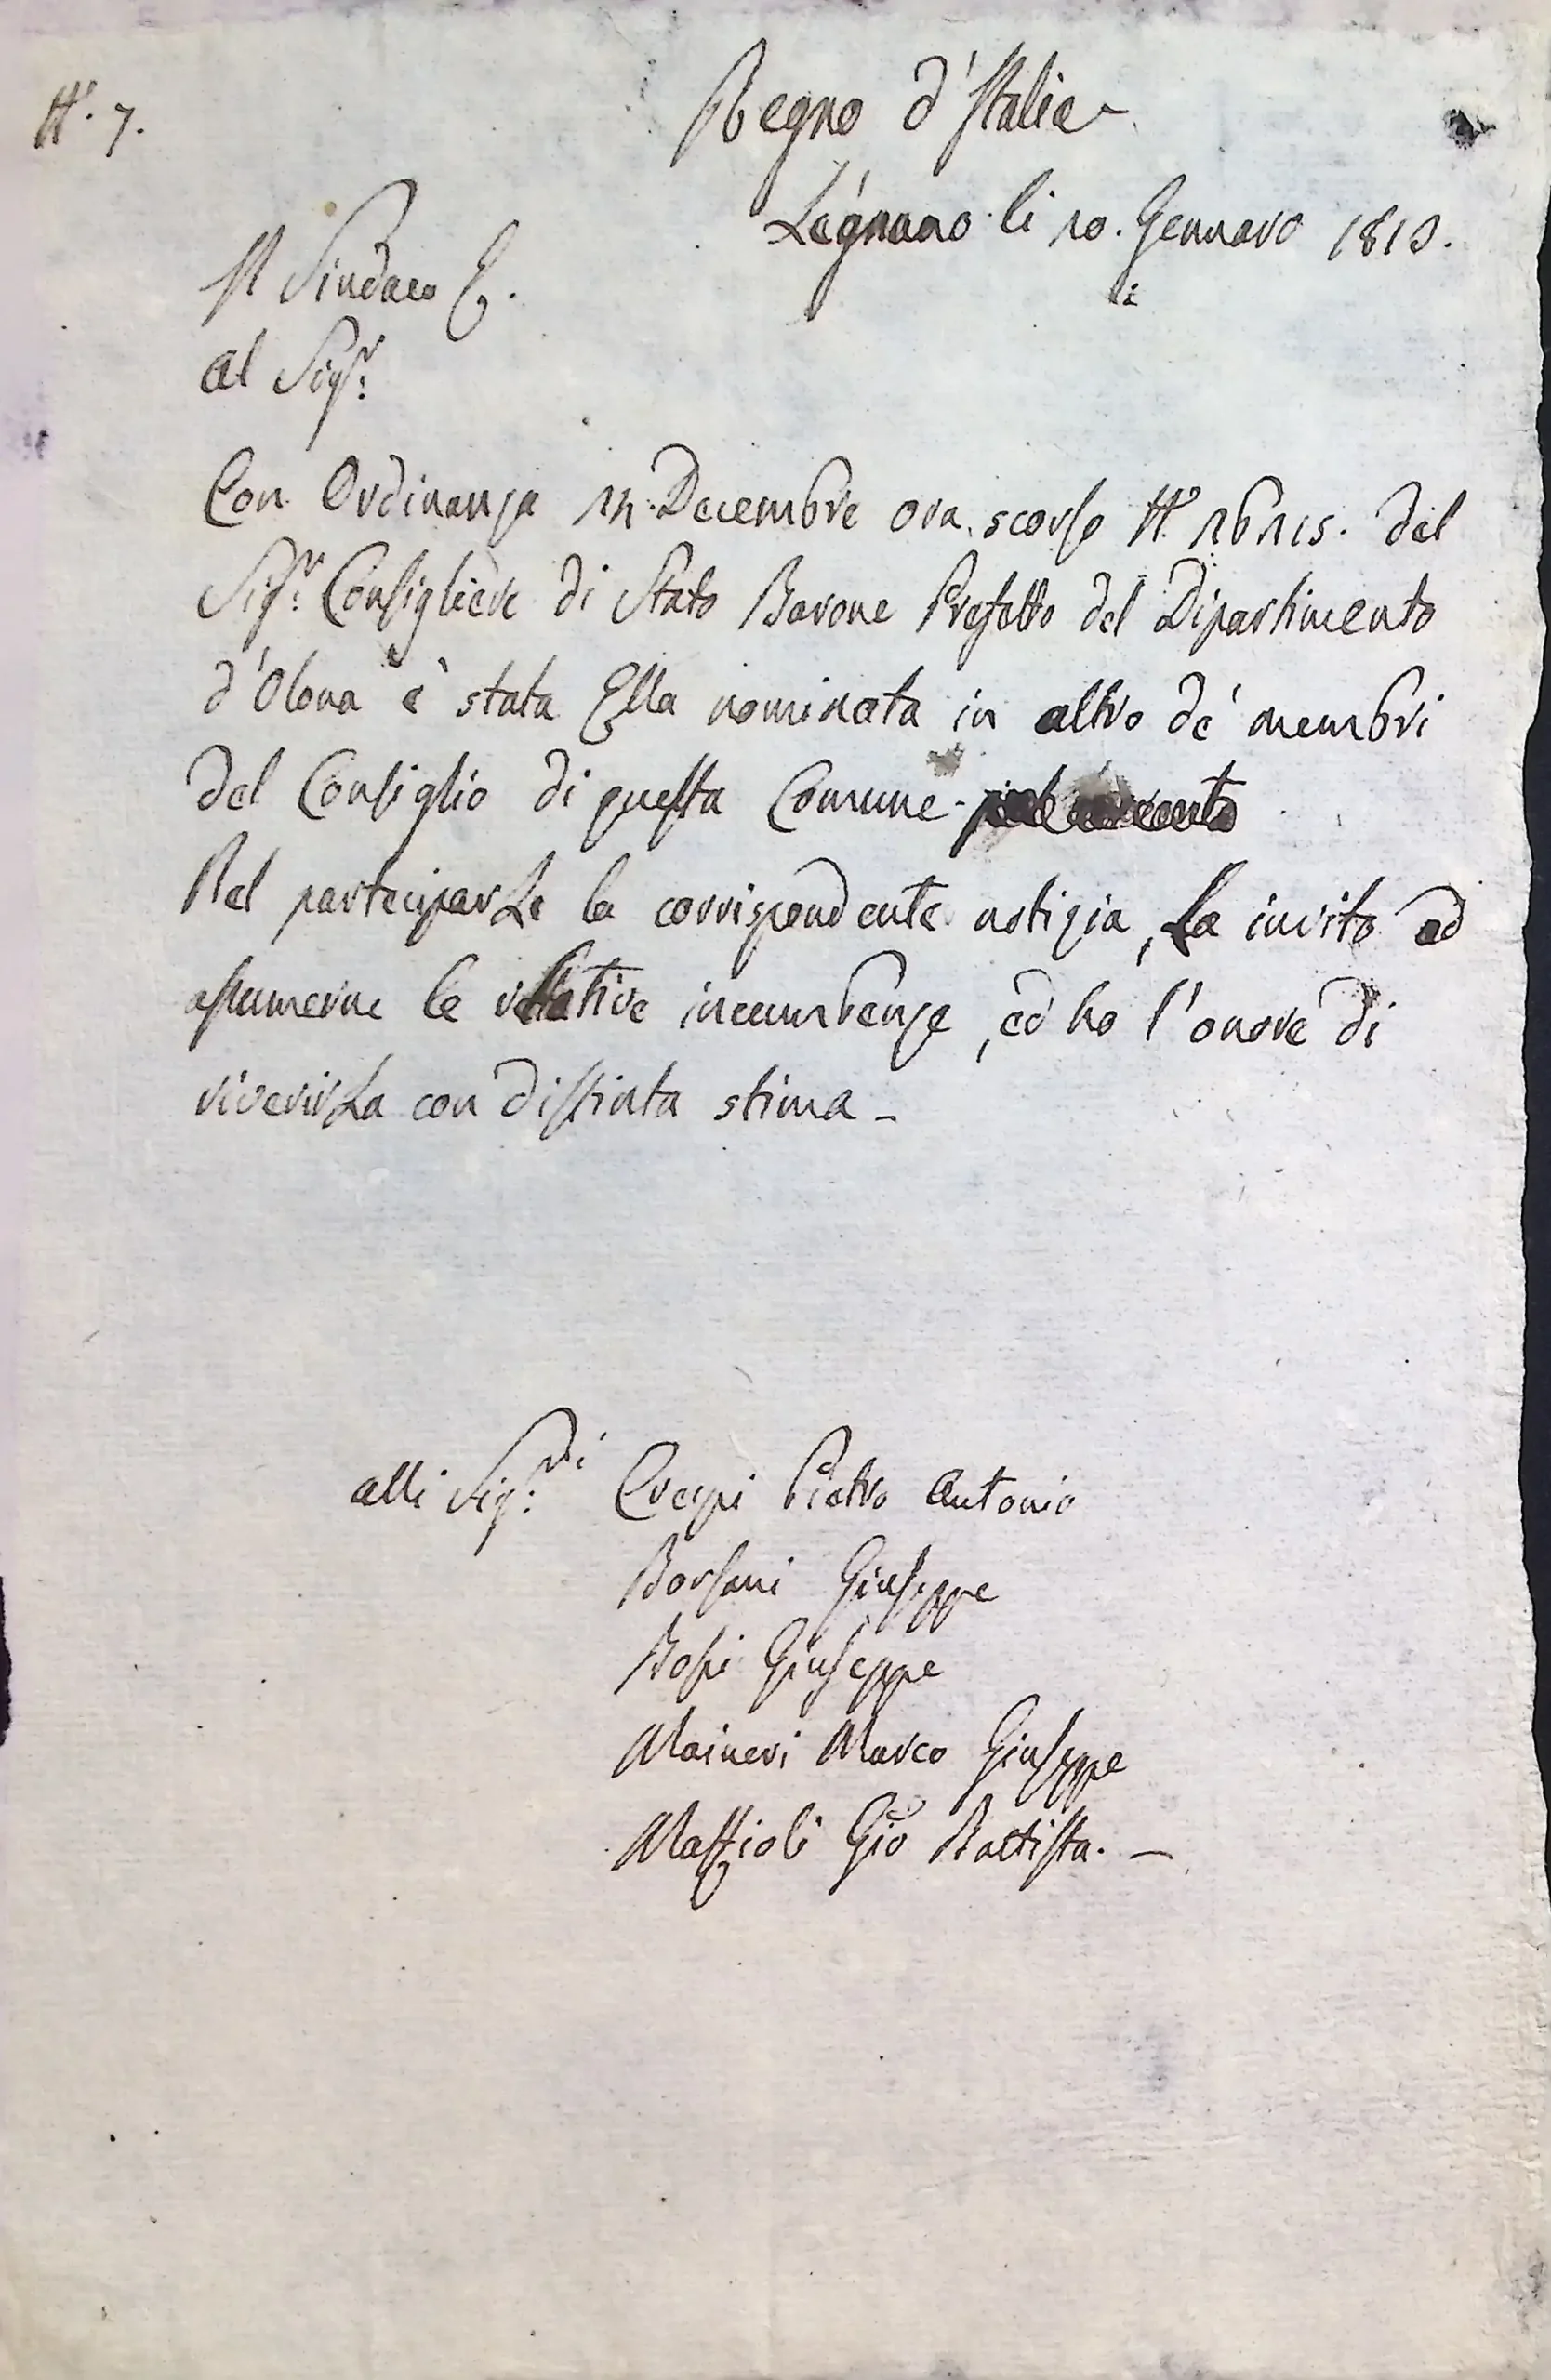 N.° 7.
Regno d'Italia
Legnano li 10. Gennaro 1813.
Il Sindaco
al Sigr.
Con Ordinanza Decembre ora scorso N.° del
Sigr. Consigliere di Stato Barone Prefetto del Dipartimento
d'Olona è stata Ella nominata in altro de' membri
del Consiglio di questa Comune.
Nel parteciparLe la corrispondente notizia, La invito ad
assumerne le relative incumbenze, ed ho l'onore di
riverirLa con distinta stima_
alli Sigri. Crespi Pietro Antonio
Borsani Giuseppe
Bossi Giuseppe
Maineri Marco Giuseppe
Gio Battista. —